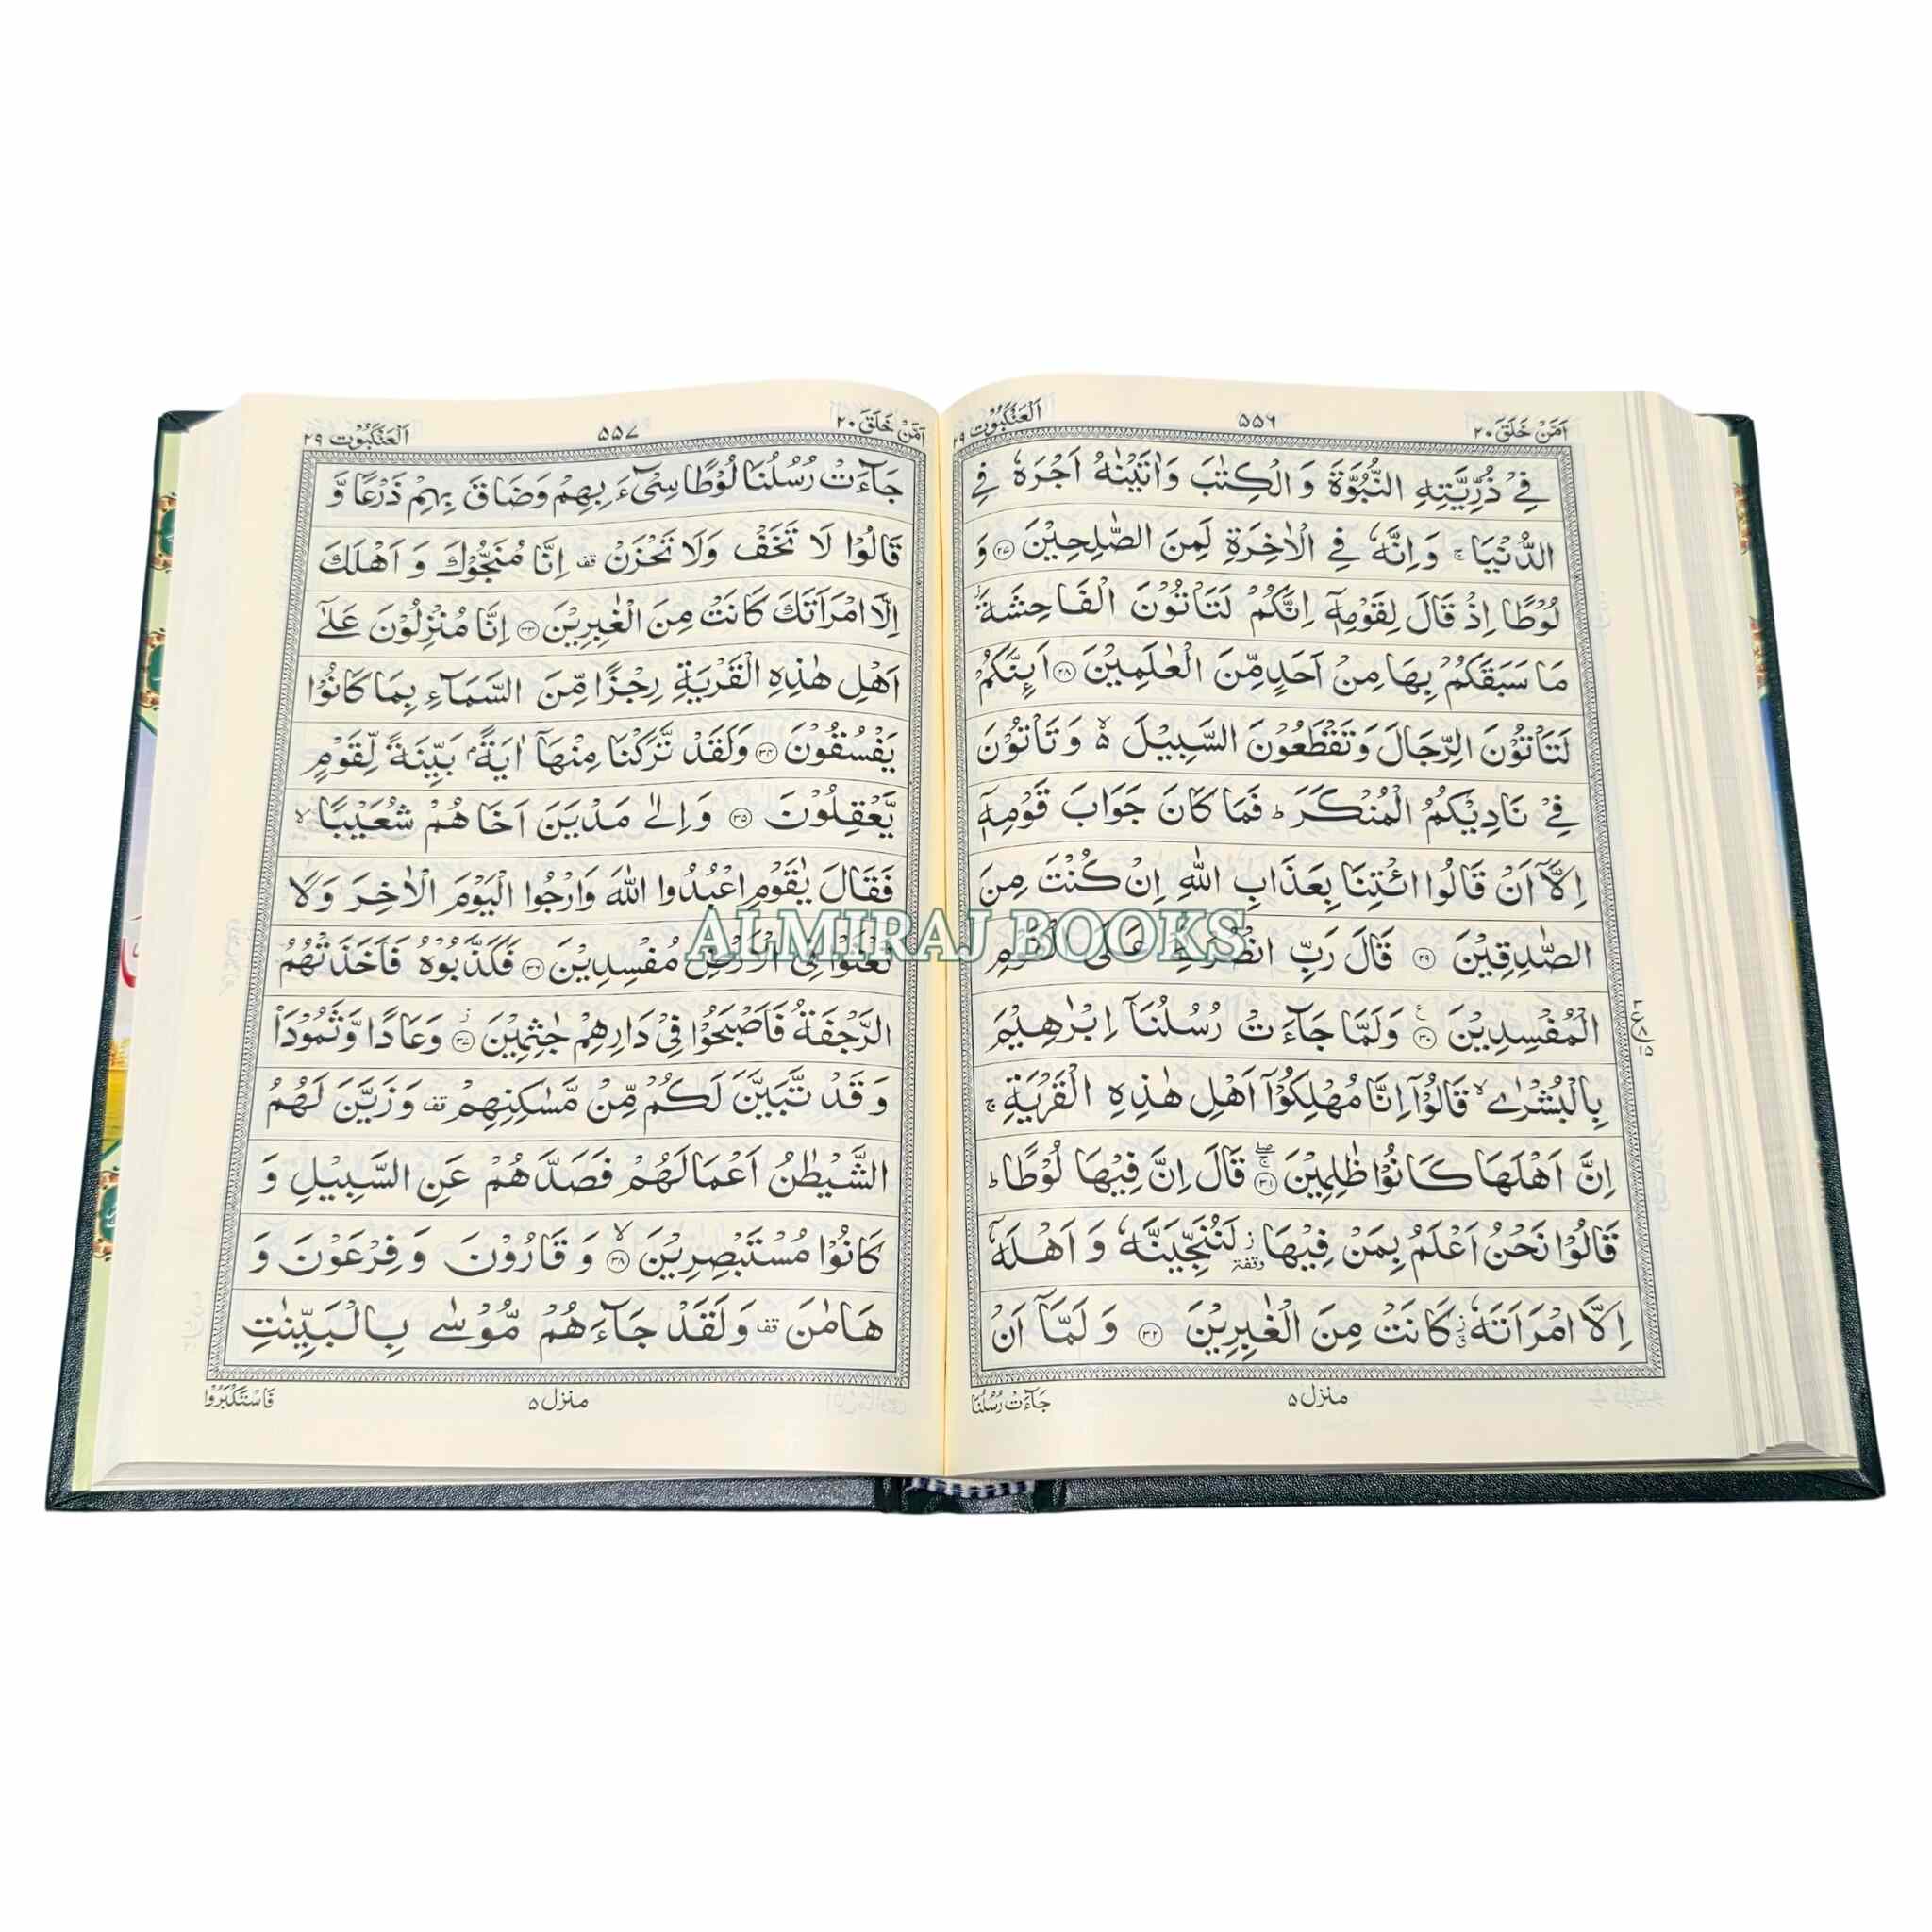 اَمَّنْ خَلَقَ ٢٠
۵۵۶
اَلْعَنْكَبُوْت ٢٩
فِيْ ذُرِّيَّتِهِ النُّبُوَّةَ وَ الْكِتٰبَ وَاٰتَيْنٰهُ اَجْرَهٗ فِي
الدُّنْيَا ۚ وَ اِنَّهٗ فِي الْاٰخِرَةِ لَمِنَ الصّٰلِحِيْنَ ۝٢٧ وَ
لُوْطًا اِذْ قَالَ لِقَوْمِهٖٓ اِنَّكُمْ لَتَاْتُوْنَ الْفَاحِشَةَ ؗ
مَا سَبَقَكُمْ بِهَا مِنْ اَحَدٍ مِّنَ الْعٰلَمِيْنَ ۝٢٨ اَئِنَّكُمْ
لَتَاْتُوْنَ الرِّجَالَ وَ تَقْطَعُوْنَ السَّبِيْلَ ۵ وَ تَاْتُوْنَ
فِيْ نَادِيْكُمُ الْمُنْكَرَ ؕ فَمَا كَانَ جَوَابَ قَوْمِهٖٓ
اِلَّاۤ اَنْ قَالُوا ائْتِنَا بِعَذَابِ اللّٰهِ اِنْ كُنْتَ مِنَ
الصّٰدِقِيْنَ ۝٢٩ قَالَ رَبِّ
الْمُفْسِدِيْنَ ۝٣٠ وَلَمَّا جَآءَتْ رُسُلُنَاۤ اِبْرٰهِيْمَ
بِالْبُشْرٰى ۙ قَالُوْۤا اِنَّا مُهْلِكُوْۤا اَهْلِ هٰذِهِ الْقَرْيَةِ ۚ
اِنَّ اَهْلَهَا كَانُوْا ظٰلِمِيْنَ ۝٣١ قَالَ اِنَّ فِيْهَا لُوْطًا ؕ
قَالُوْا نَحْنُ اَعْلَمُ بِمَنْ فِيْهَا ز وقفة لَنُنَجِّيَنَّهٗ وَ اَهْلَهٗۤ
اِلَّا امْرَاَتَهٗ ز كَانَتْ مِنَ الْغٰبِرِيْنَ ۝٣٢ وَ لَمَّاۤ اَنْ
منزل ۵
جَآءَتْ رُسُلُنَا
اَمَّنْ خَلَقَ ٢٠
۵۵۷
اَلْعَنْكَبُوْت ٢٩
جَآءَتْ رُسُلُنَا لُوْطًا سِيْٓءَ بِهِمْ وَضَاقَ بِهِمْ ذَرْعًا وَّ
قَالُوْا لَا تَخَفْ وَلَا تَحْزَنْ قف اِنَّا مُنَجُّوْكَ وَ اَهْلَكَ
اِلَّا امْرَاَتَكَ كَانَتْ مِنَ الْغٰبِرِيْنَ ۝٣٣ اِنَّا مُنْزِلُوْنَ عَلٰٓى
اَهْلِ هٰذِهِ الْقَرْيَةِ رِجْزًا مِّنَ السَّمَآءِ بِمَا كَانُوْا
يَفْسُقُوْنَ ۝٣٤ وَلَقَدْ تَّرَكْنَا مِنْهَاۤ اٰيَةًۢ بَيِّنَةً لِّقَوْمٍ
يَّعْقِلُوْنَ ۝٣٥ وَ اِلٰى مَدْيَنَ اَخَاهُمْ شُعَيْبًا ۙ
فَقَالَ يٰقَوْمِ اعْبُدُوا اللّٰهَ وَارْجُوا الْيَوْمَ الْاٰخِرَ وَلَا
تَعْثَوْا فِي الْاَرْضِ مُفْسِدِيْنَ ۝٣٦ فَكَذَّبُوْهُ فَاَخَذَتْهُمُ
الرَّجْفَةُ فَاَصْبَحُوْا فِيْ دَارِهِمْ جٰثِمِيْنَ ۝٣٧ وَعَادًا وَّثَمُوْدَا۟
وَ قَدْ تَّبَيَّنَ لَكُمْ مِّنْ مَّسٰكِنِهِمْ قف وَ زَيَّنَ لَهُمُ
الشَّيْطٰنُ اَعْمَالَهُمْ فَصَدَّهُمْ عَنِ السَّبِيْلِ وَ
كَانُوْا مُسْتَبْصِرِيْنَ ۝٣٨ۙ وَ قَارُوْنَ وَ فِرْعَوْنَ وَ
هَامٰنَ قف وَلَقَدْ جَآءَهُمْ مُّوْسٰى بِالْبَيِّنٰتِ
منزل ۵
فَاسْتَكْبَرُوْا
ALMIRAJ BOOKS